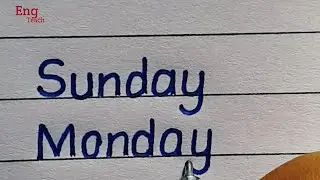 Eng
Teach
Sunday
Monday